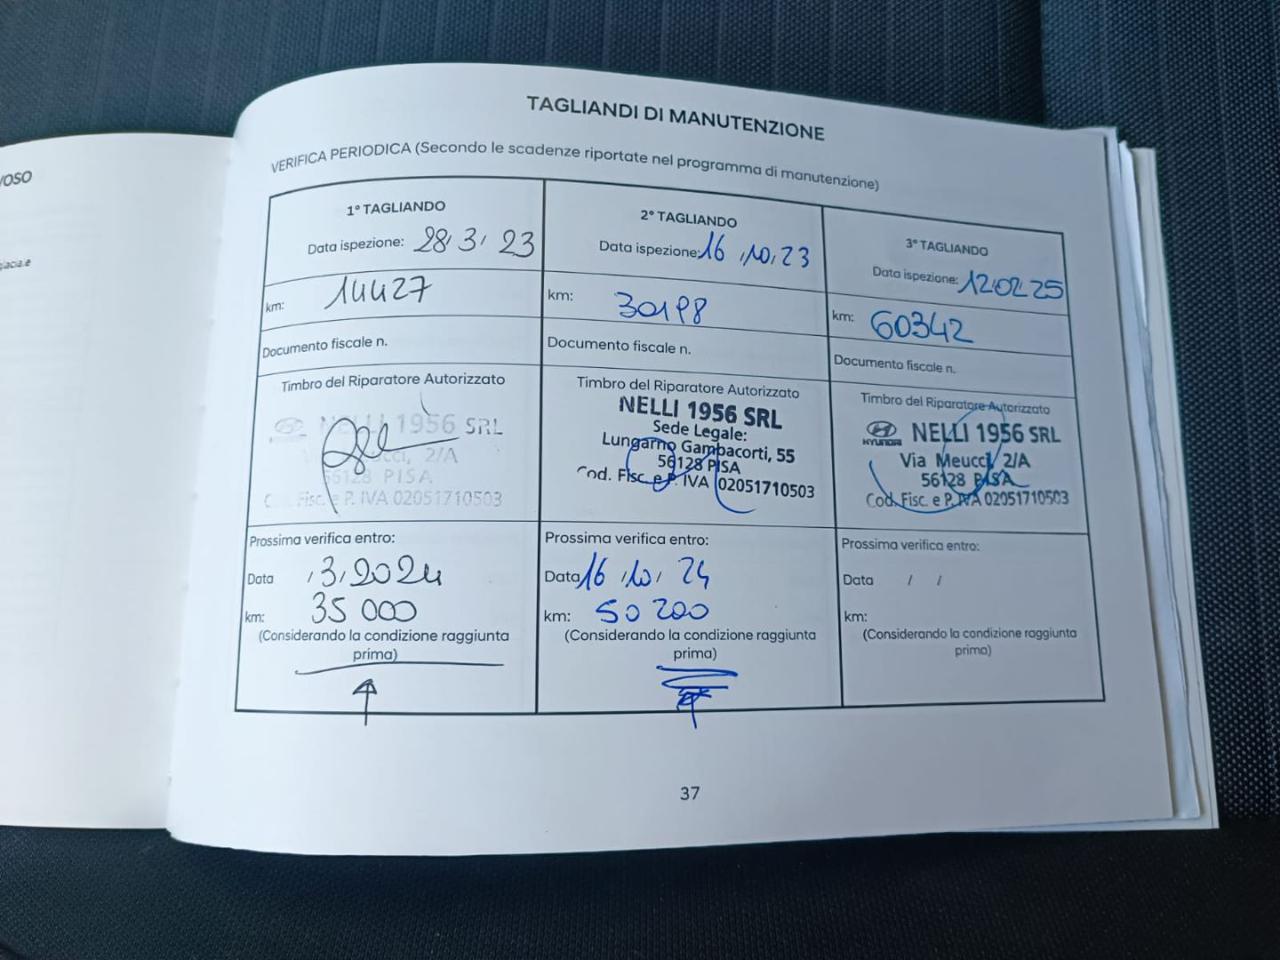 VOSO
giacia.e
TAGLIANDI DI MANUTENZIONE
VERIFICA PERIODICA (Secondo le scadenze riportate nel programma di manutenzione)
1° TAGLIANDO
Data ispezione: 28/3/23
km: 14427
Documento fiscale n.
Timbro del Riparatore Autorizzato
NELLI 1956 SRL
Meucci, 2/A
56128 PISA
Cod. Fisc. e P. IVA 02051710503
Prossima verifica entro:
Data /3/2024
km: 35 000
(Considerando la condizione raggiunta
prima)
2° TAGLIANDO
Data ispezione: 16/10/23
km: 30198
Documento fiscale n.
Timbro del Riparatore Autorizzato
NELLI 1956 SRL
Sede Legale:
Lungarno Gambacorti, 55
56128 PISA
Cod. Fisc. e P. IVA 02051710503
Prossima verifica entro:
Data 16/10/24
km: 50 200
(Considerando la condizione raggiunta
prima)
3° TAGLIANDO
Data ispezione: 12.02.25
km: 60342
Documento fiscale n.
Timbro del Riparatore Autorizzato
HYUNDAI NELLI 1956 SRL
Via Meucci, 2/A
56128 PISA
Cod. Fisc. e P. IVA 02051710503
Prossima verifica entro:
Data / /
km:
(Considerando la condizione raggiunta
prima)
37